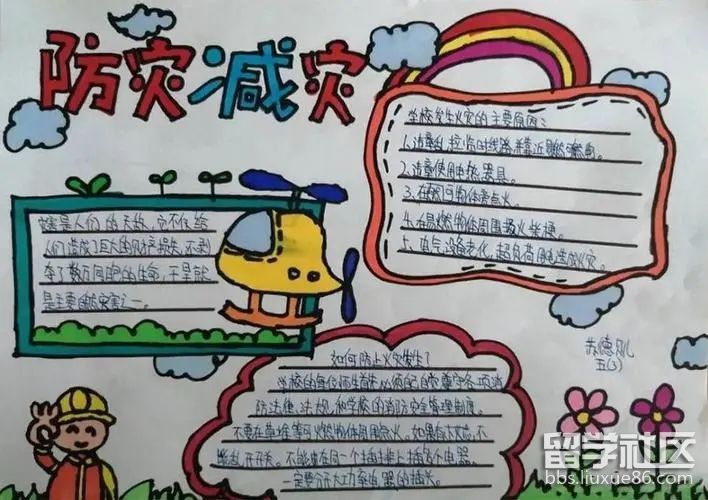 防灾减灾
学校发生火灾的主要原因：
1.违章乱拉临时线路并靠近易燃物。
2.违章使用电热器具。
3.在燃可物体旁点火。
4.在易燃物体周围吸火柴梗。
5.电气设备老化，超负荷用电造成火灾。
是人们的天敌，它不仅给
人们造成了巨大的财产损失，还剥
夺了数万同胞的生命，干旱就
是主要自然灾害之一。
如何防止火灾发生？
学校的每位师生首先必须自觉遵守各项消
防法律、法规，和学校的消防安全管理制度。
不要在草堆等可燃物体周围点火。
不能在同一个插排上插多个电器，
一定要分开大功率电器的插头。
苏德
五(3)
留学社区
bbs.liuxue86.com